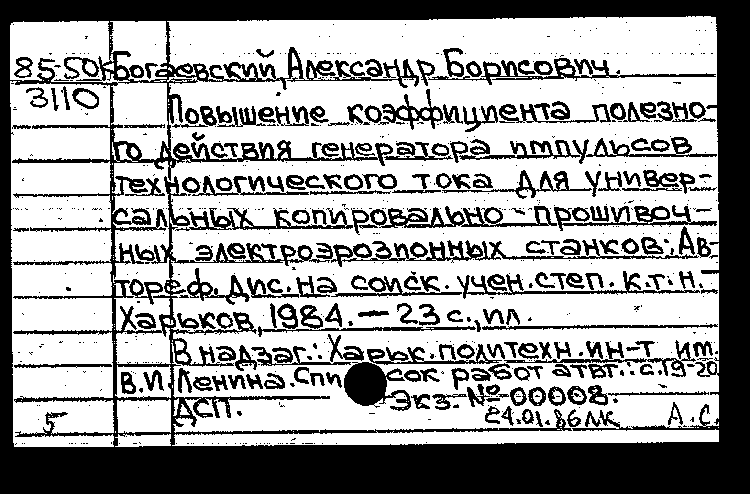 85-50к Богаевский, Александр Борисович.
3110
Повышение коэффициента полезно-
го действия генератора импульсов
технологического тока для универ-
сальных копировально-прошивоч-
ных электроэрозионных станков: Ав-
тореф. дис. на соиск. учен. степ. к.т.н. -
Харьков, 1984. - 23 с., ил.
В надзаг.: Харьк. политехн. ин-т им.
В.И. Ленина. Список работ авт.: с.19-20
ДСП. Экз. № 00008.
5 24.01.86 ЛК А.С.